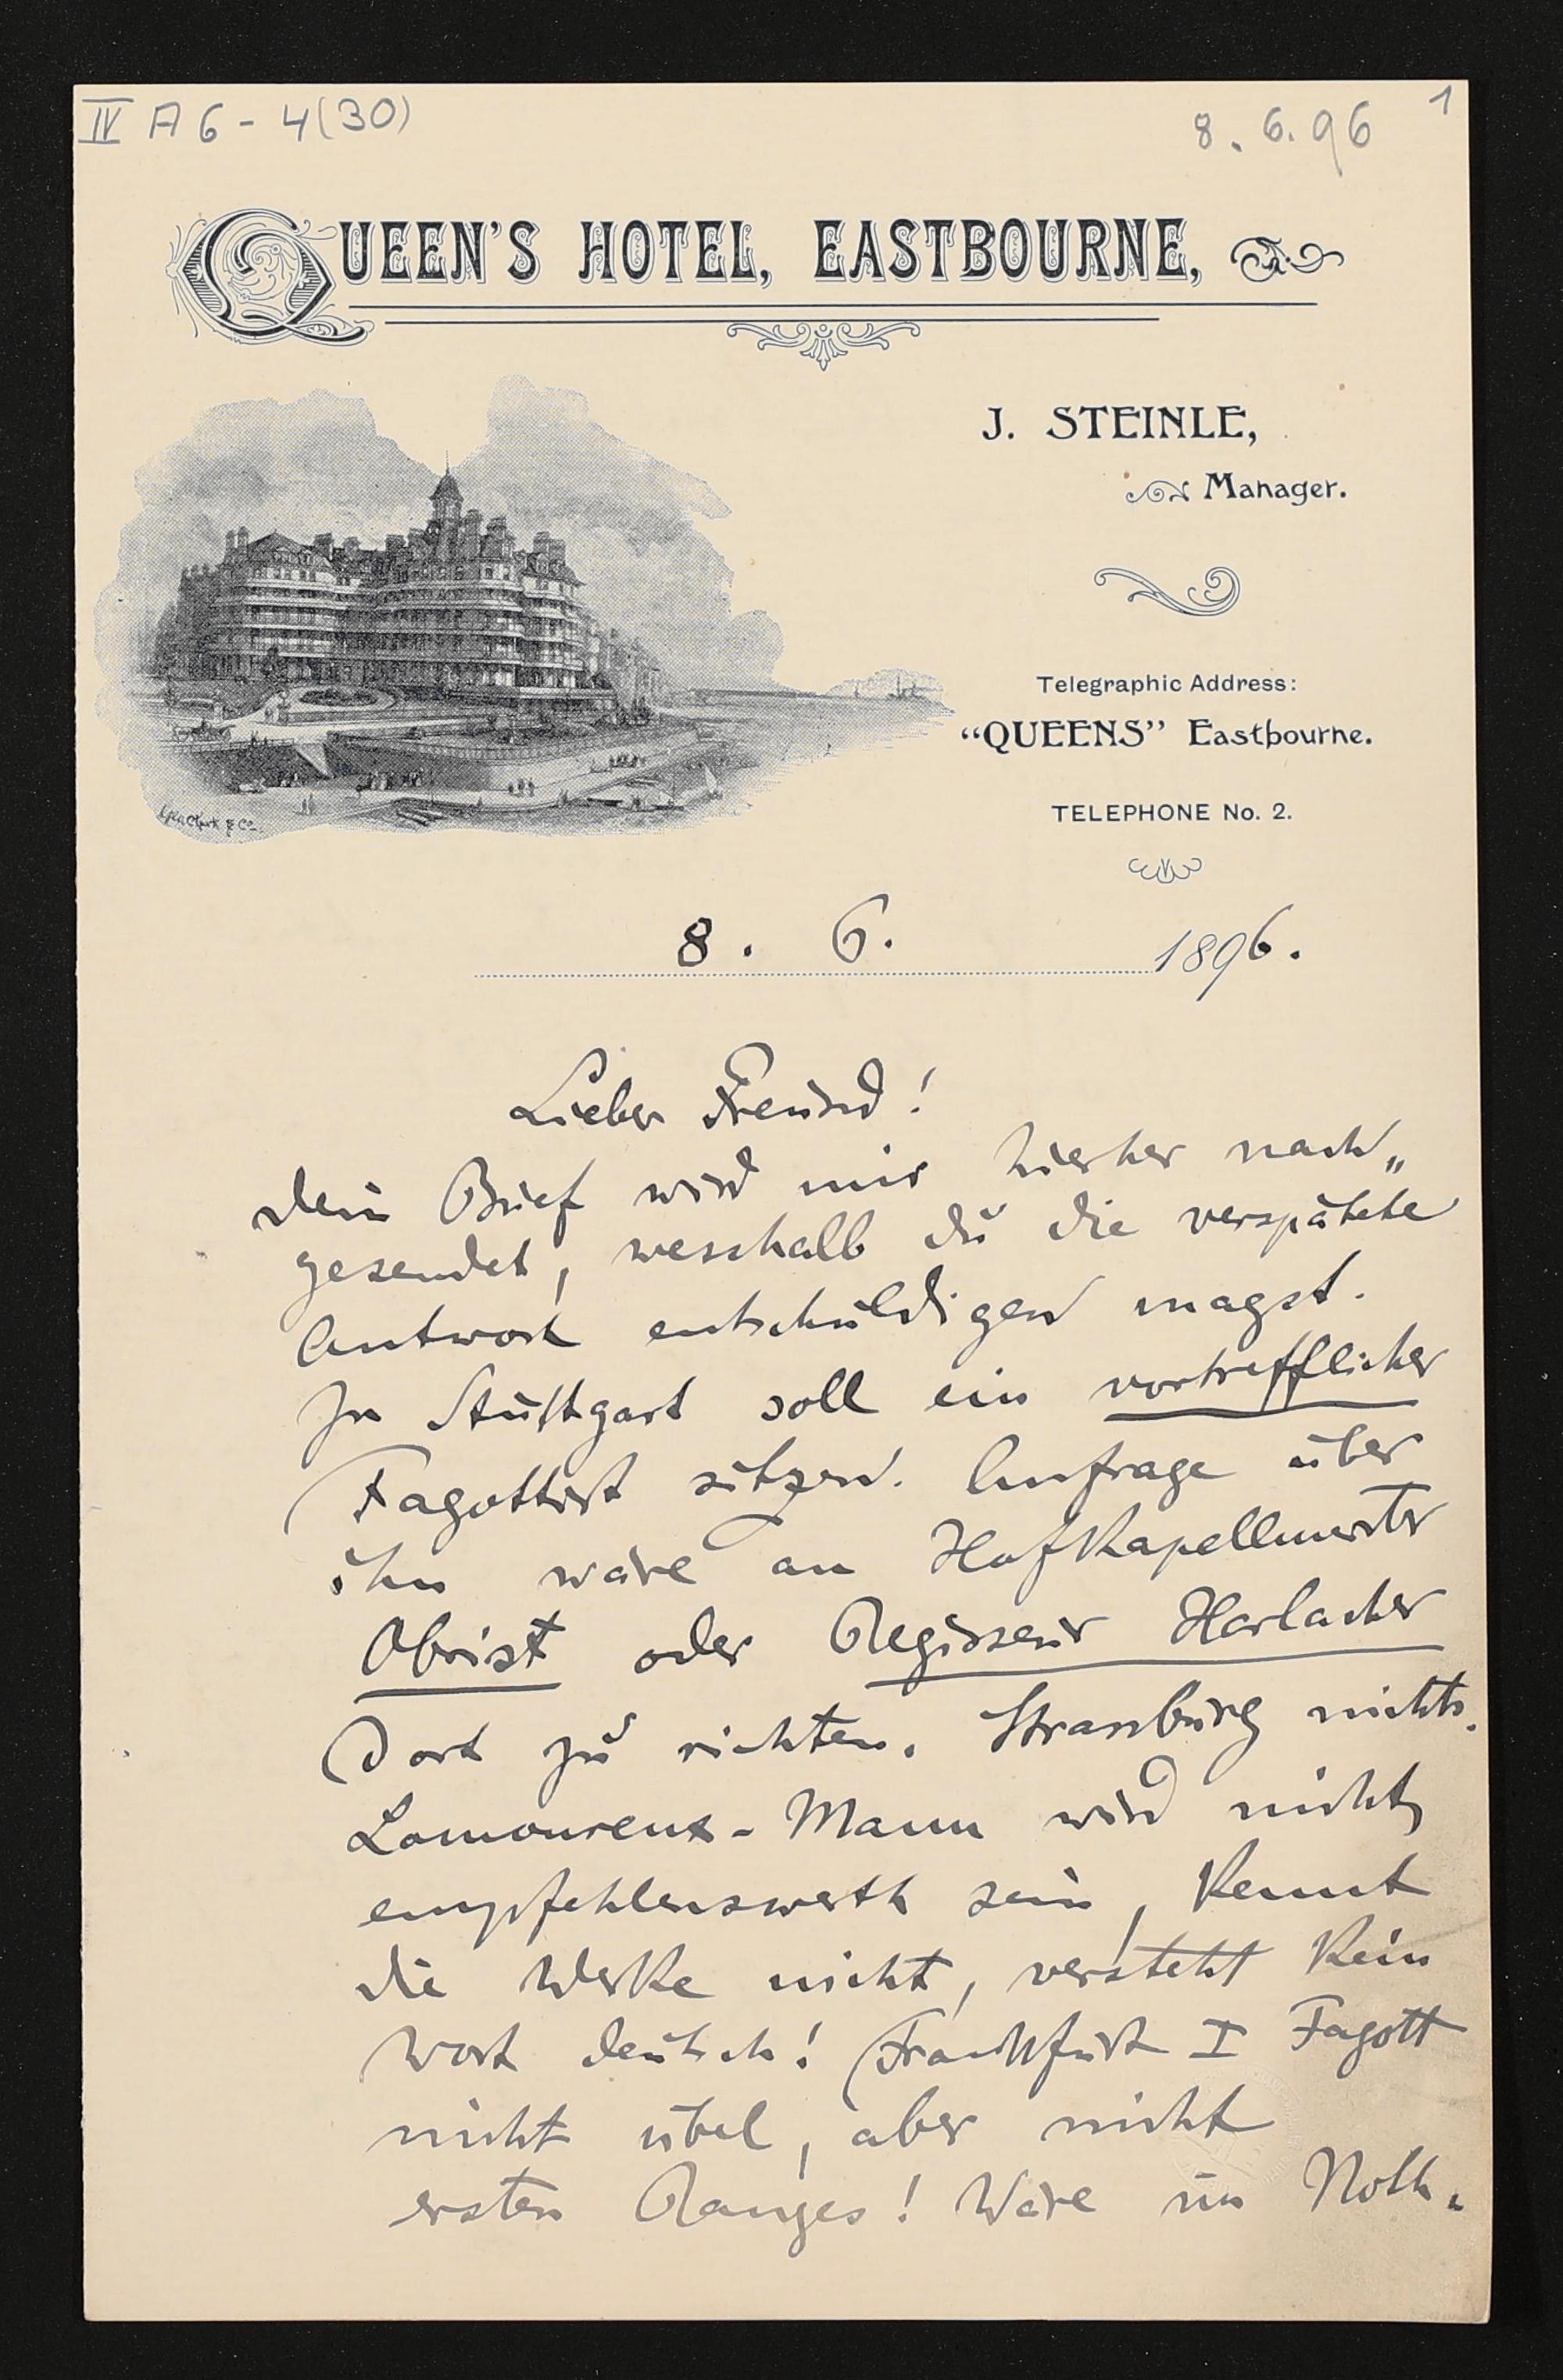 IV A 6 - 4 (30)
8. 6. 96
1
QUEEN'S HOTEL, EASTBOURNE,
J. STEINLE,
Manager.
Telegraphic Address:
“QUEENS” Eastbourne.
TELEPHONE No. 2.
8. 6. 1896.
Lieber Freund!
dein Brief wird mir hierher nach„
gesendet, wesshalb du die verspätete
Antwort entschuldigen magst.
In Stuttgart soll ein vortrefflicher
Fagottist sitzen. Anfrage über
ihn wäre an Hofkapellmeister
Obrist oder Regisseur Harlacher
dort zu richten. Strassburg nichts.
Lamoureux-Mann wird nicht
empfehlenswerth sein, kennt
die Werke nicht, versteht kein
Wort deutsch! Frankfurt I Fagott
nicht übel, aber nicht
ersten Ranges! Wäre im Noth„